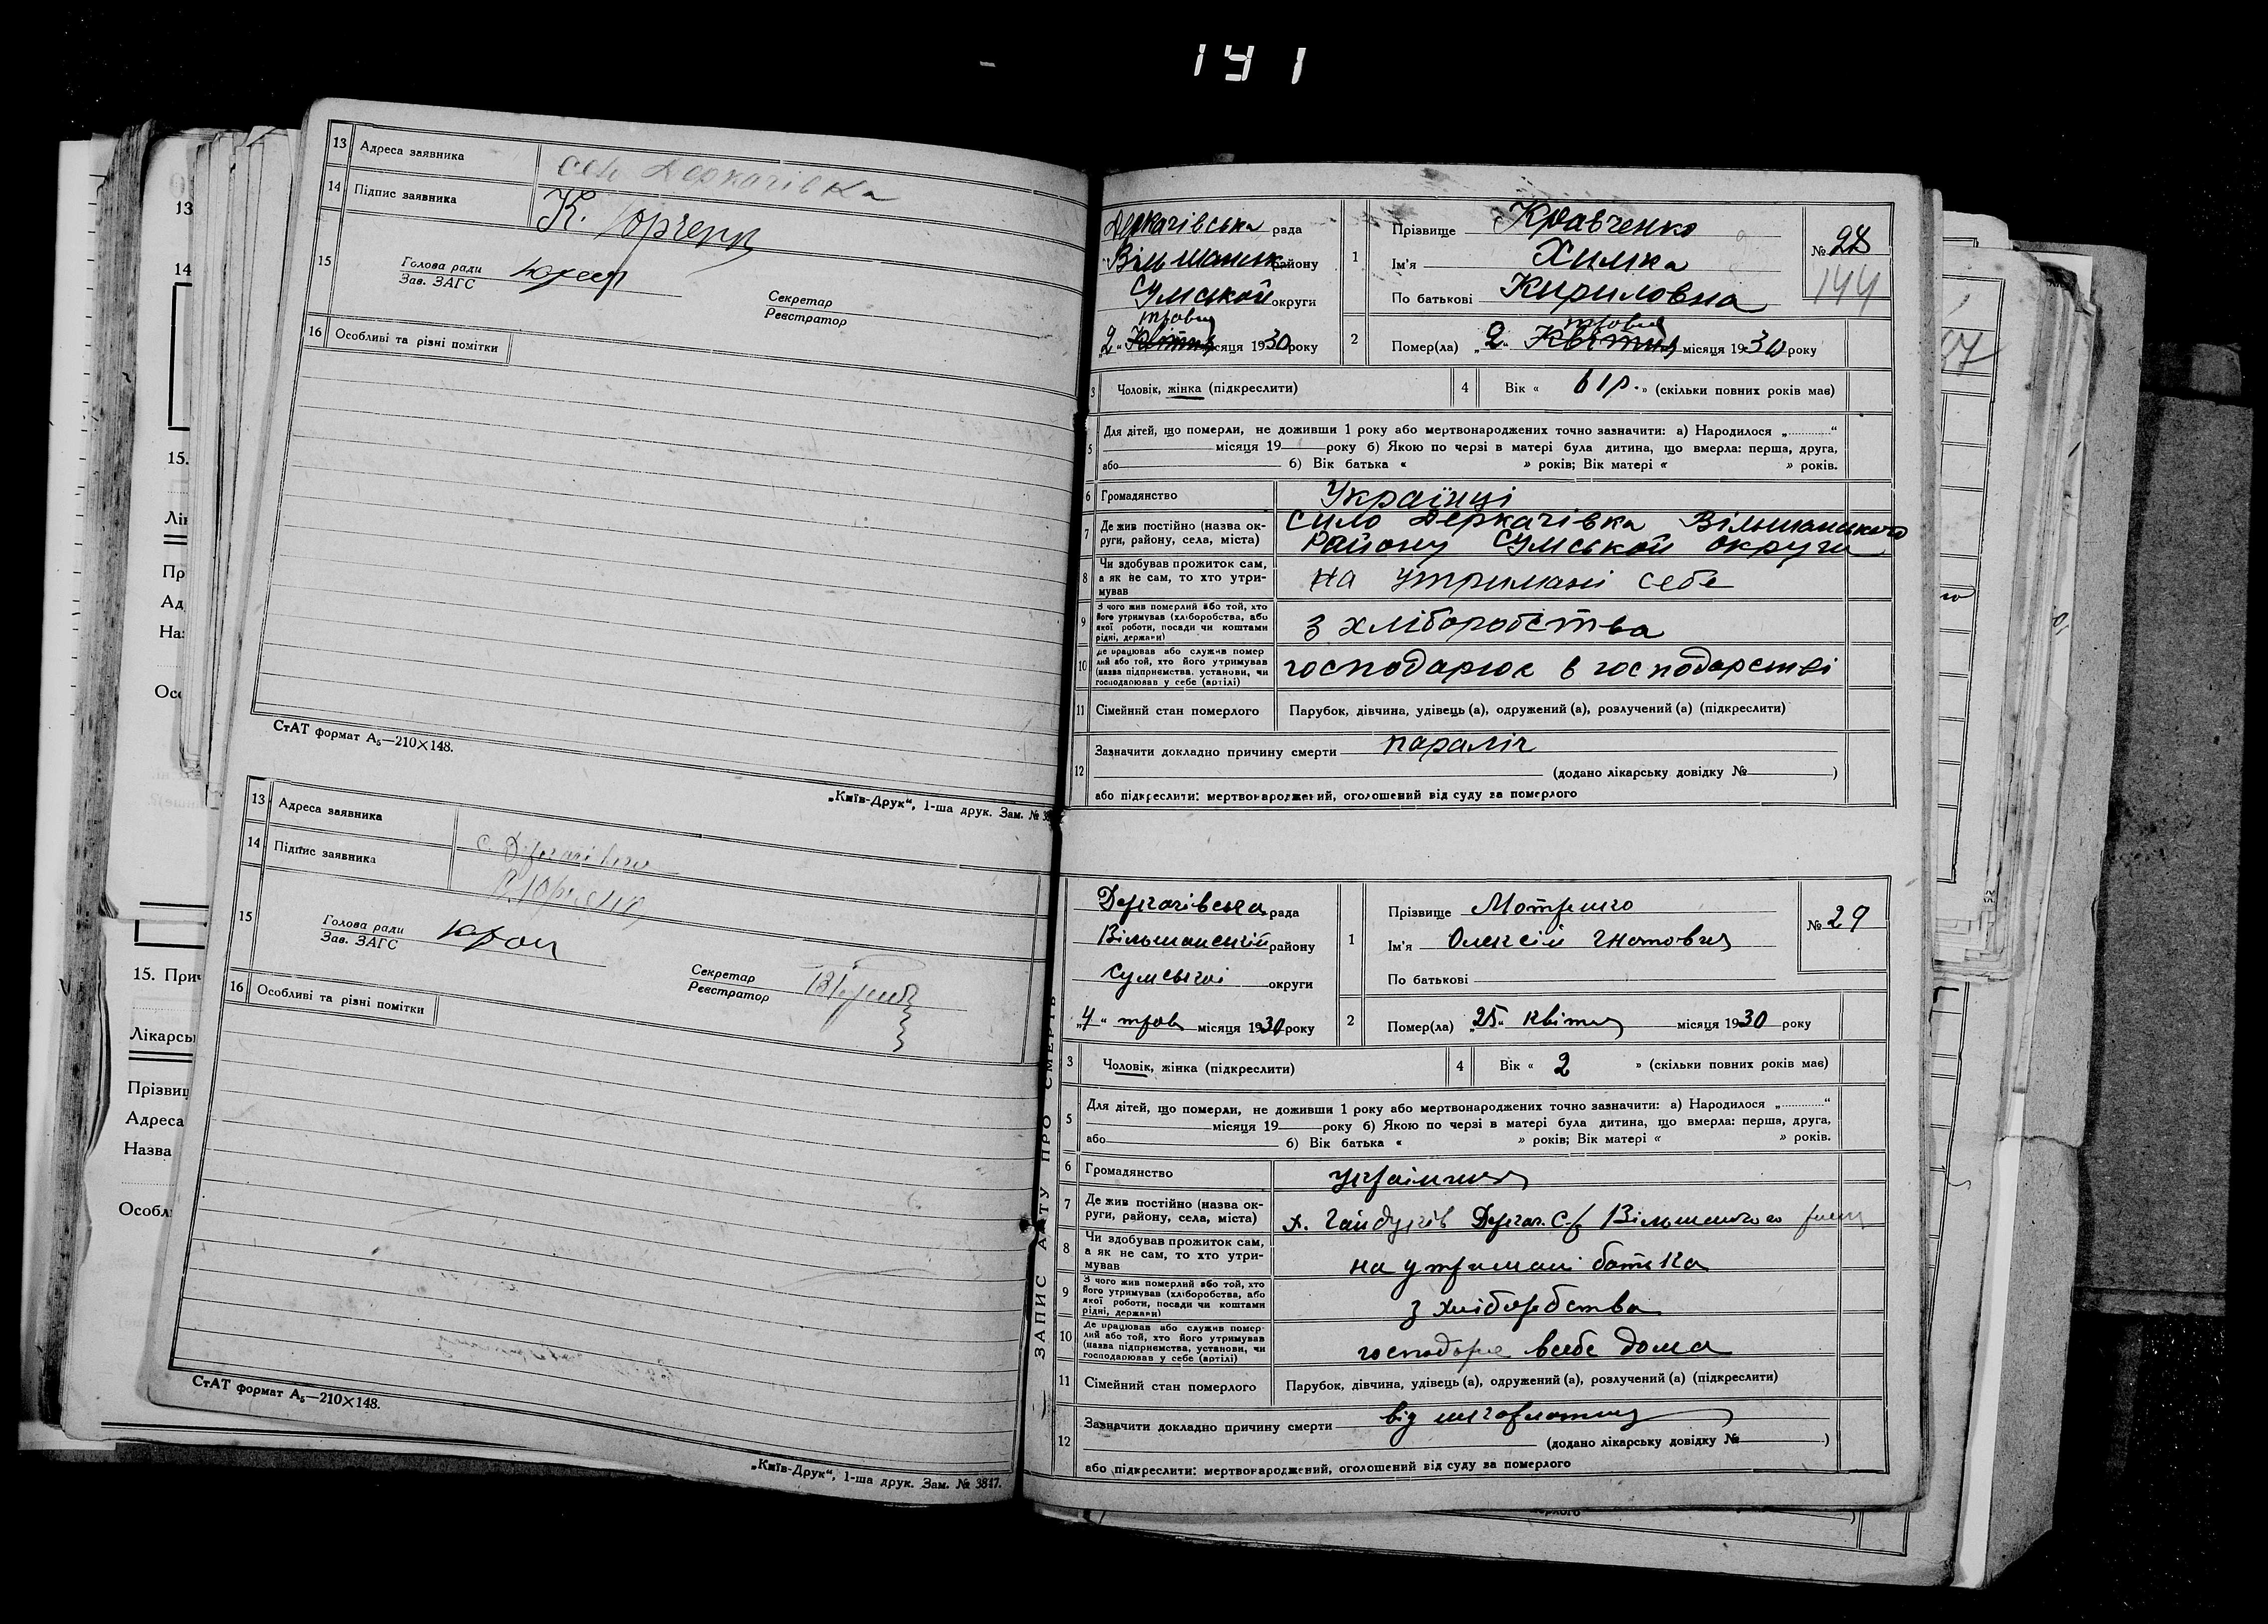 141
13 Адреса заявника сел Деркачівка
14 Підпис заявника К. Юрченко
15 Голова ради
Зав. ЗАГС
Секретар
Реєстратор
16 Особливі та різні помітки
СтАТ формат А₅—210×148.
„Київ-Друк“, 1-ша друк. Зам. № 38
13 Адреса заявника с. Деркачівка
14 Підпис заявника
15 Голова ради
Зав. ЗАГС
Секретар
Реєстратор
16 Особливі та різні помітки
СтАТ формат А₅—210×148.
„Київ-Друк“, 1-ша друк. Зам. № 3847.
13
14
15.
Лік
Пр
Ад
На
Осо
15. Прич
Лікарсь
Прізвищ
Адреса
Назва
Особл
ЗАПИС АКТУ ПРО СМЕРТЬ
Деркачівська рада
Вільшанськ району
Сумськой округи
травня
„2“ Квітня місяця 1930 року
1 Прізвище Кравченко
Ім'я Химка
По батькові Кириловна
№ 28
144
травня
2 Помер(ла) „2“ Квітня місяця 1930 року
3 Чоловік, жінка (підкреслити) 4 Вік « 61 р. » (скільки повних років має)
5 Для дітей, що померли, не доживши 1 року або мертвонароджених точно зазначити: а) Народилося „............“
місяця 19 року б) Якою по черзі в матері була дитина, що вмерла: перша, друга,
або б) Вік батька « » років; Вік матері « » років.
6 Громадянство Українці
7 Де жив постійно (назва ок-
руги, району, села, міста) Сило Деркачівка Вільшанського
Району Сумськой округи
8 Чи здобував прожиток сам,
а як не сам, то хто утри-
мував на утримані себе
9 З чого жив померлий або той, хто
його утримував (хліборобства, або
якої роботи, посади чи коштами
рідні, держави) з хліборобства
10 Де працював або служив помер
лий або той, хто його утримував
(назва підприємства, установи, чи
господарював у себе (артілі) господарює в господарстві
11 Сімейний стан померлого Парубок, дівчина, удівець (а), одружений (а), розлучений (а) (підкреслити)
12 Зазначити докладно причину смерти параліч
(додано лікарську довідку № )
або підкреслити: мертвонароджений, оголошений від суду за померлого
Деркачівська рада
Вільшанський району
Сумської округи
„4“ трав місяця 1930 року
1 Прізвище Мотренко
Ім'я Олексій Гнатович
По батькові
№ 29
2 Помер(ла) „25“ квітня місяця 1930 року
3 Чоловік, жінка (підкреслити) 4 Вік « 2 » (скільки повних років має)
5 Для дітей, що померли, не доживши 1 року або мертвонароджених точно зазначити: а) Народилося „............“
місяця 19 року б) Якою по черзі в матері була дитина, що вмерла: перша, друга,
або б) Вік батька « » років; Вік матері « » років.
6 Громадянство
7 Де жив постійно (назва ок-
руги, району, села, міста) х. Гайдуків Деркач. с/р Вільшанського
8 Чи здобував прожиток сам,
а як не сам, то хто утри-
мував на утримані батька
9 З чого жив померлий або той, хто
його утримував (хліборобства, або
якої роботи, посади чи коштами
рідні, держави) з хліборобства
10 Де працював або служив помер-
лий або той, хто його утримував
(назва підприємства, установи, чи
господарював у себе (артілі) господарює в себе дома
11 Сімейний стан померлого Парубок, дівчина, удівець (а), одружений (а), розлучений (а) (підкреслити)
12 Зазначити докладно причину смерти від
(додано лікарську довідку № )
або підкреслити: мертвонароджений, оголошений від суду за померлого